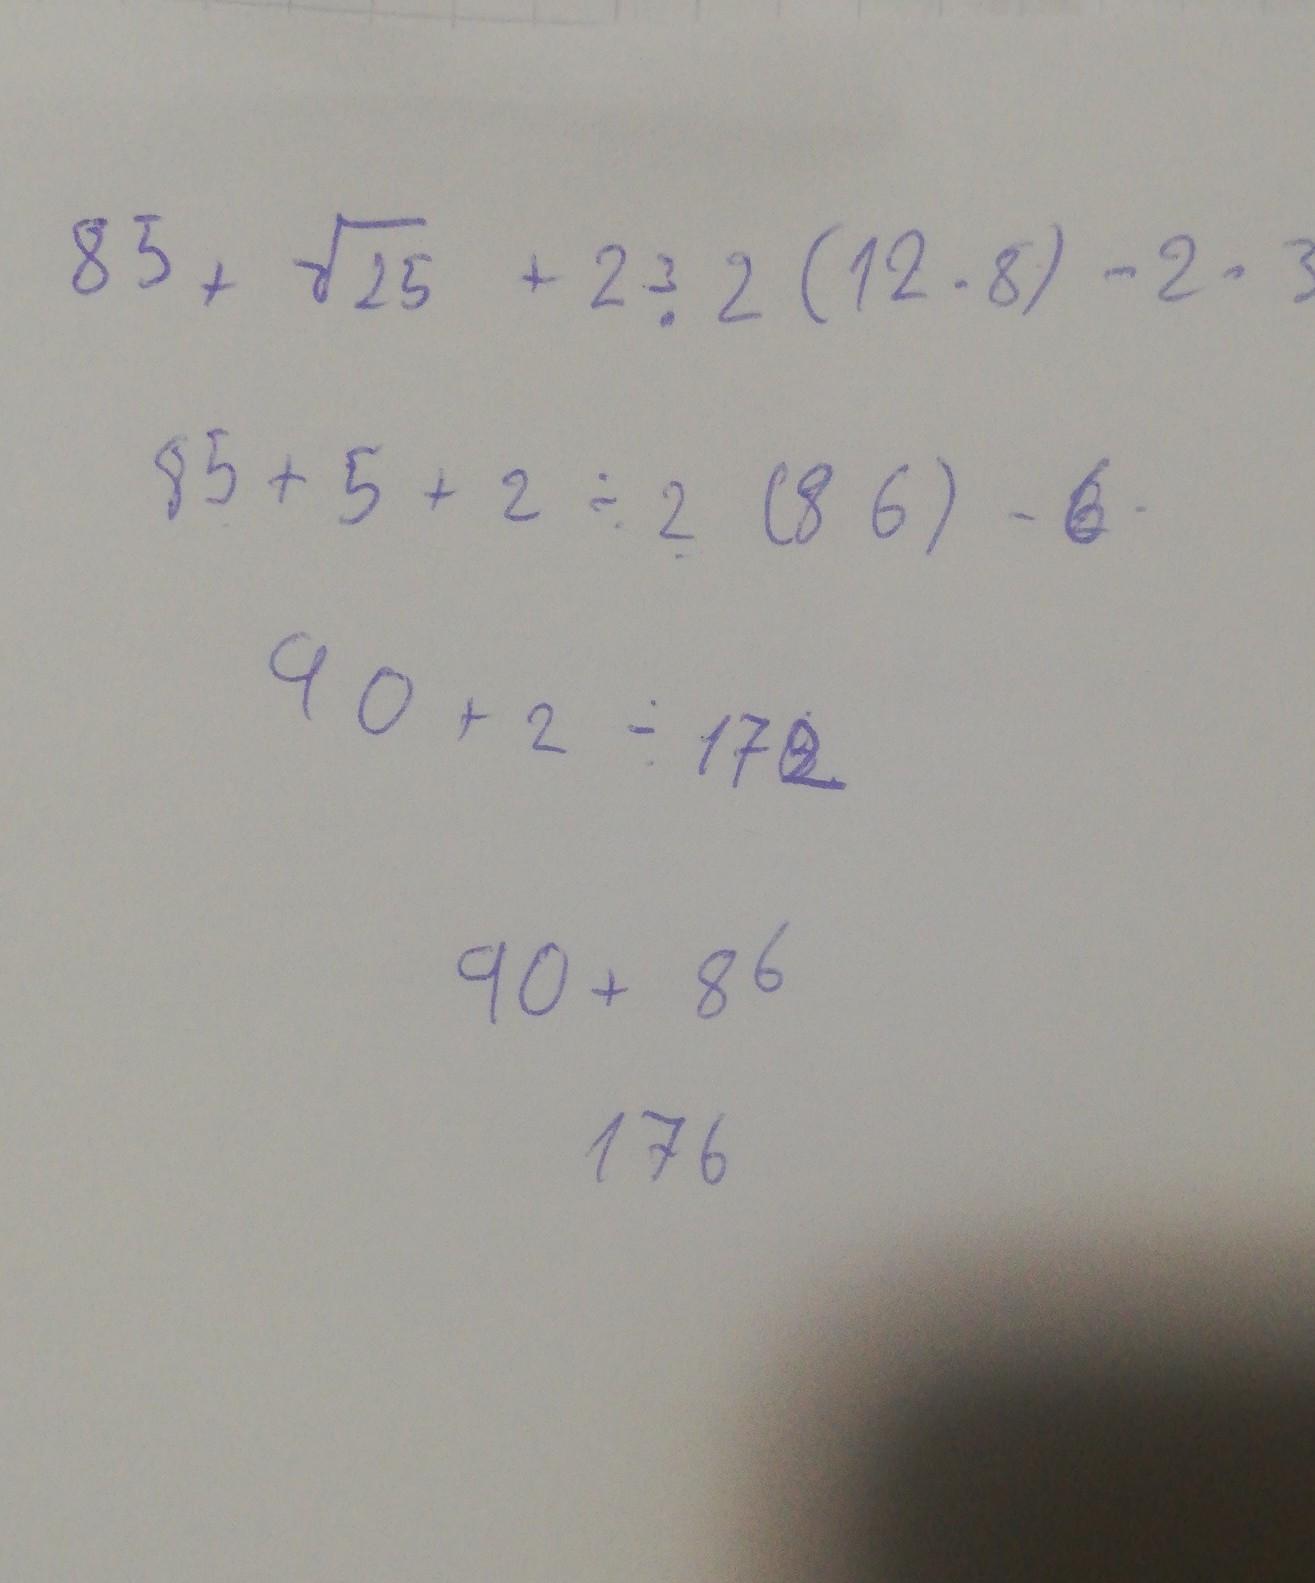 85 + √25 + 2 ÷ 2 (12 · 8) - 2 · 3
85 + 5 + 2 ÷ 2 (86) - 6
90 + 2 ÷ 172
90 + 86
176